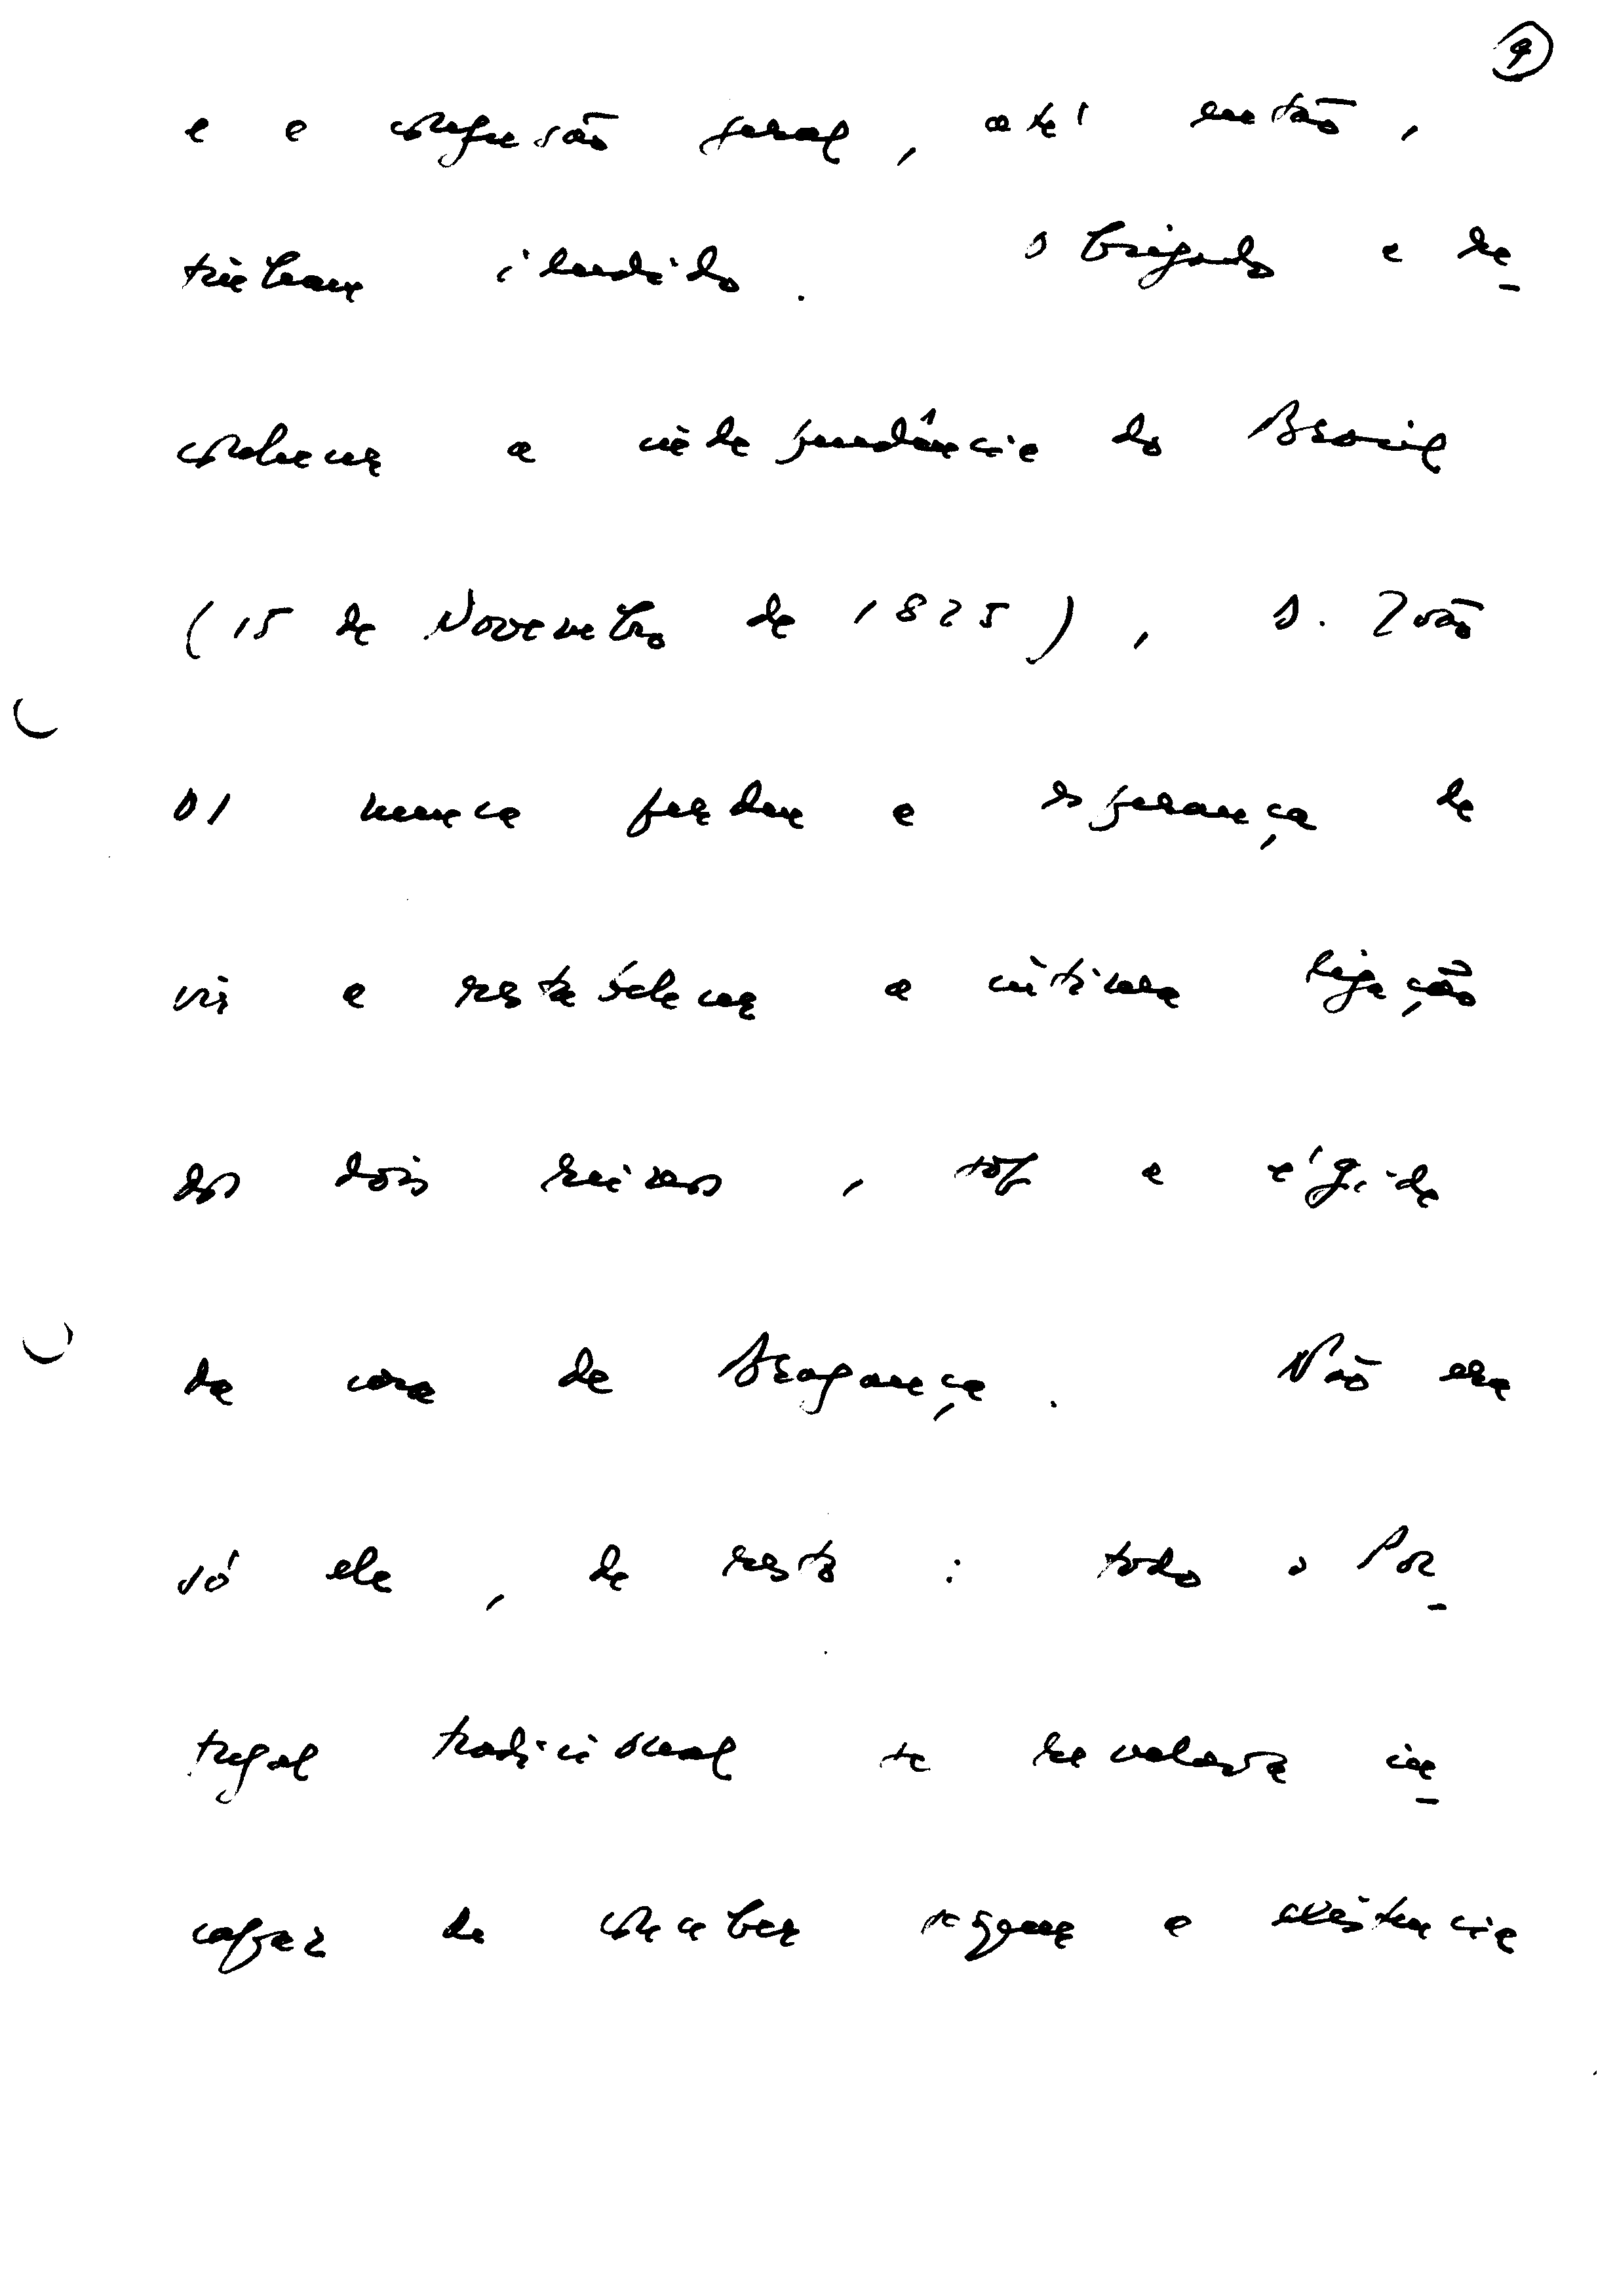 9
e a confusão geral, até então,
tinham iludido. Obrigado a re-
conhecer a independência do Brasil
(15 de Novembro de 1825), D. João
VI nunca perdeu a esperança de
vir a restabelecer a íntima ligação
dos dois reinos, sob a égide
da casa de Bragança. Não era
só ele, de resto: todo o Por-
tugal tradicional se revelava in-
capaz de conceber sequer a existência